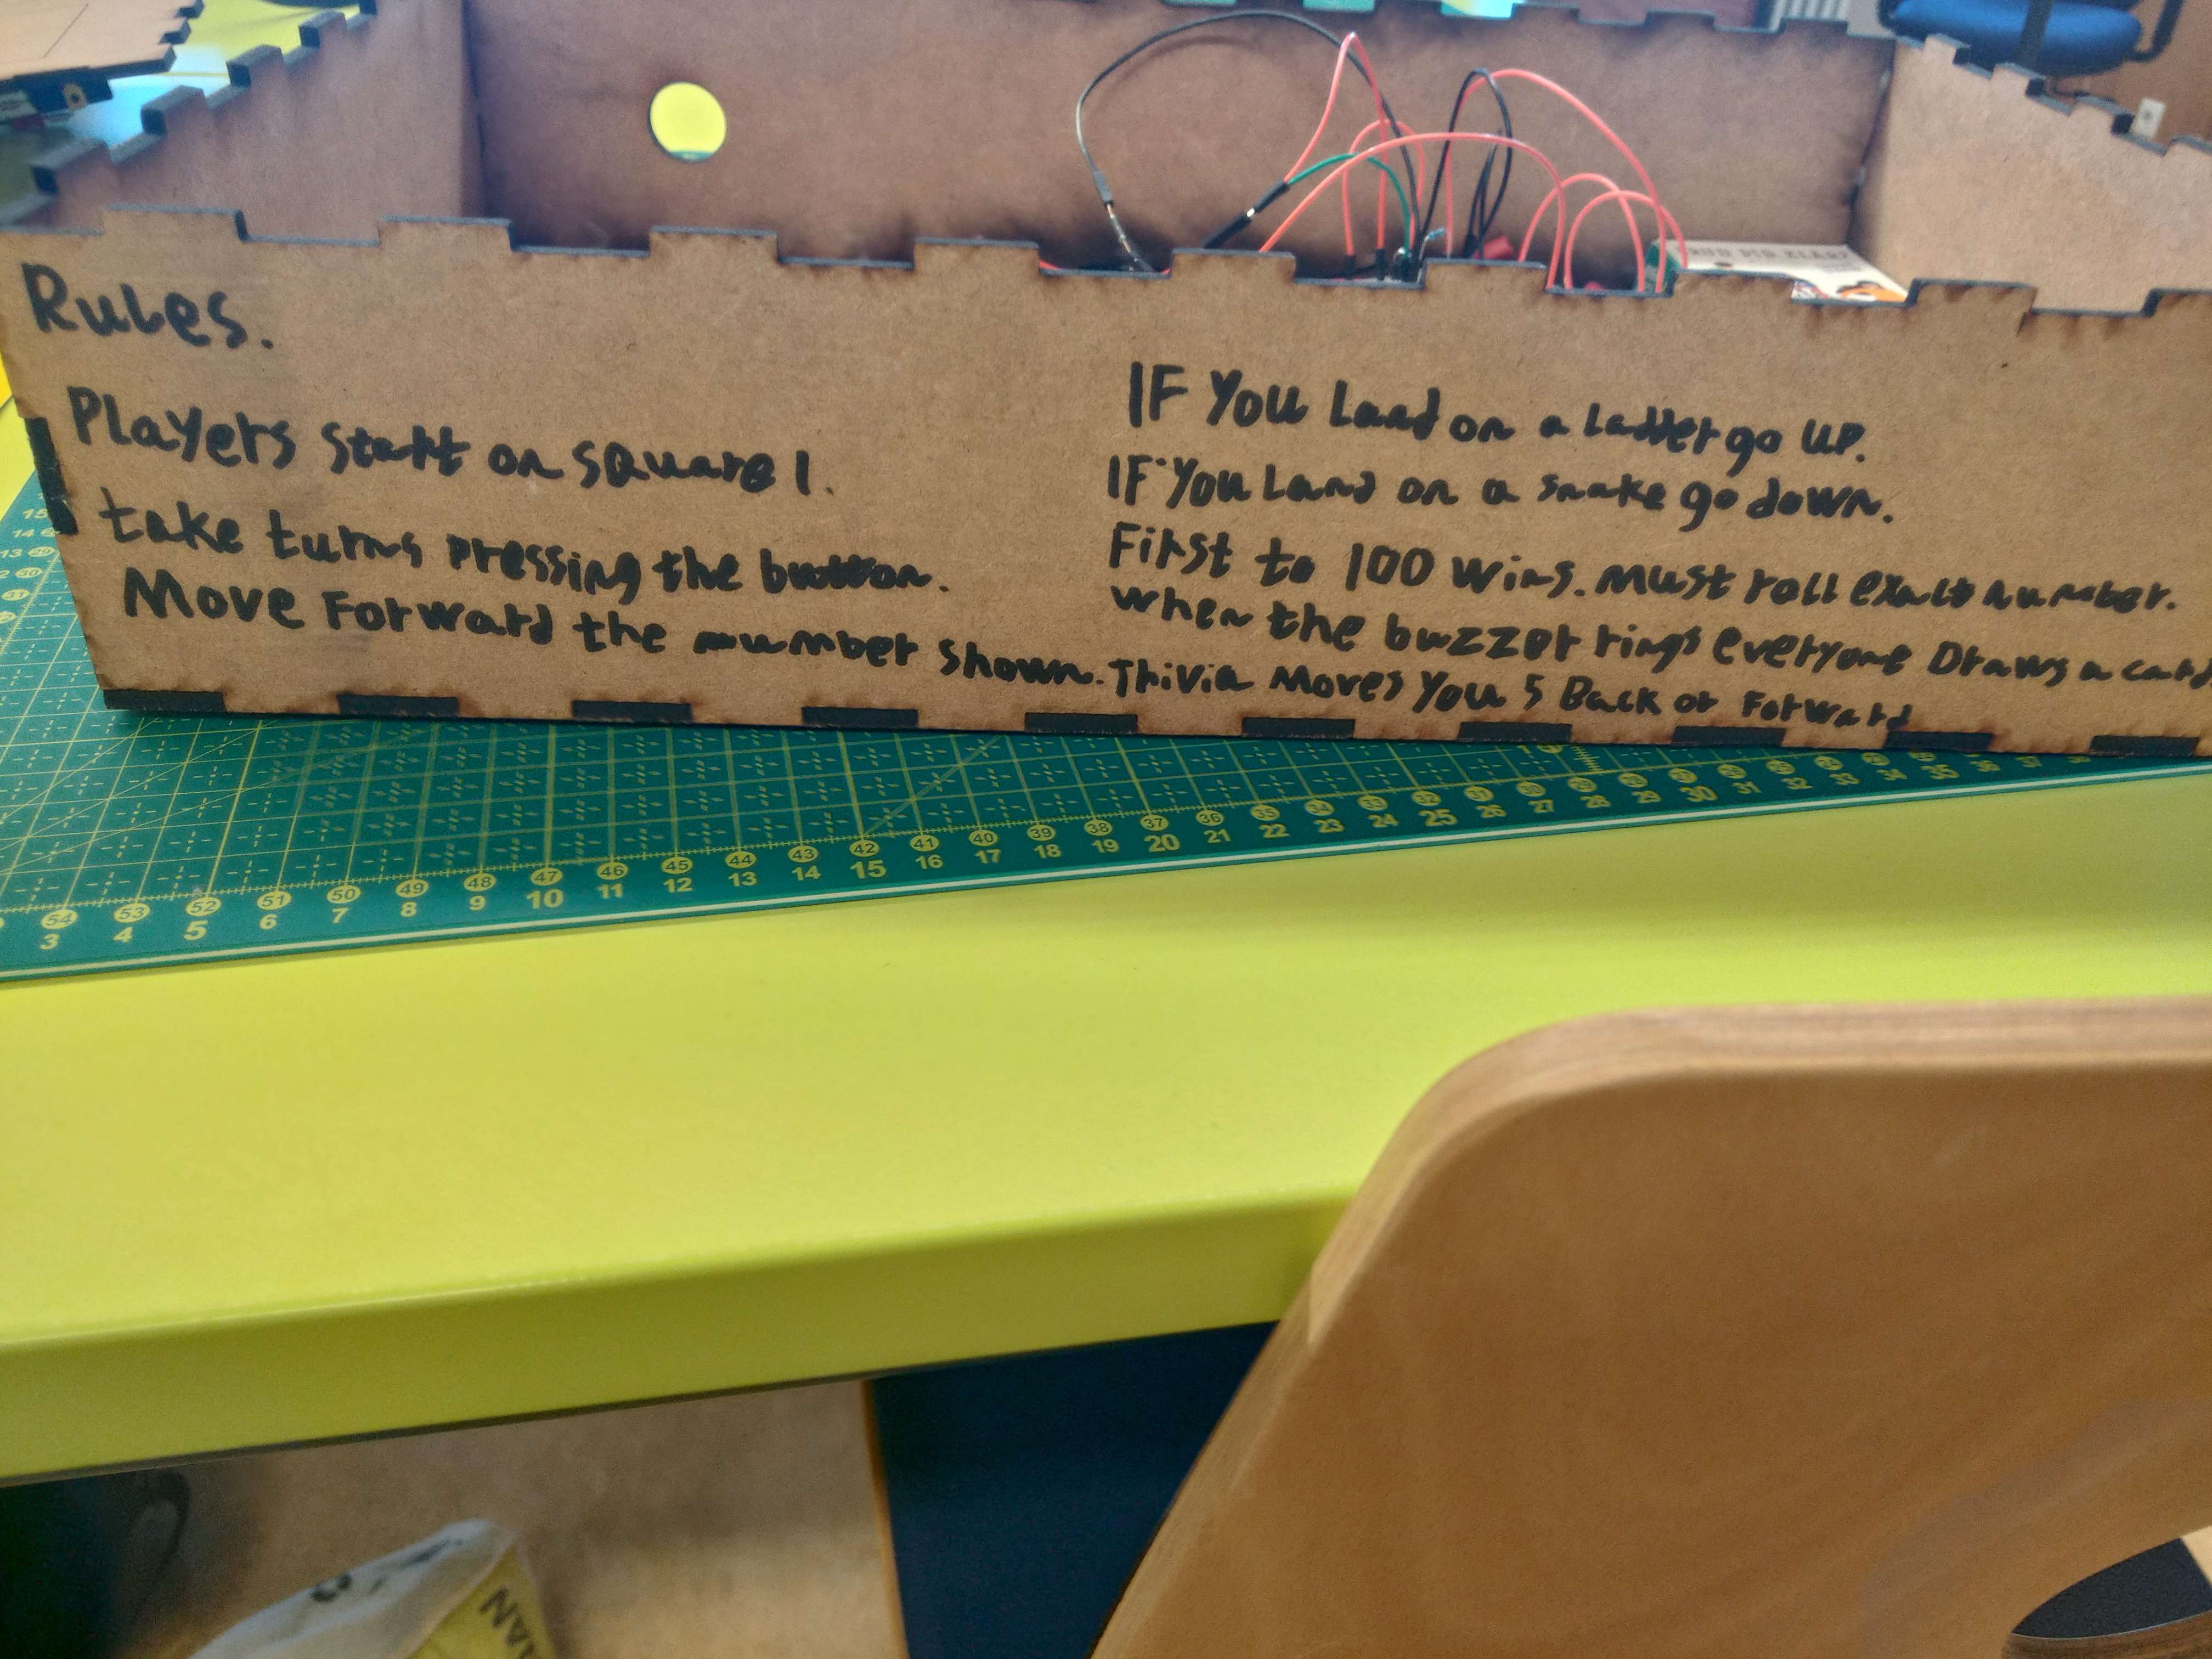 Rules.
Players start on square 1.
take turns pressing the button.
Move Forward the number shown.
IF You Land on a Ladder go UP.
IF You Land on a snake go down.
First to 100 wins. Must roll exact number.
when the buzzer rings everyone Draws a card
Trivia Moves You 5 Back or Forward
54 53 52 51 50 49 48 47 46 45 44 43 42 41 40 39 38 37 36 35 34 33 32
3 4 5 6 7 8 9 10 11 12 13 14 15 16 17 18 19 20 21 22 23 24 25 26 27 28 29 30 31 32 33 34 35 36 37